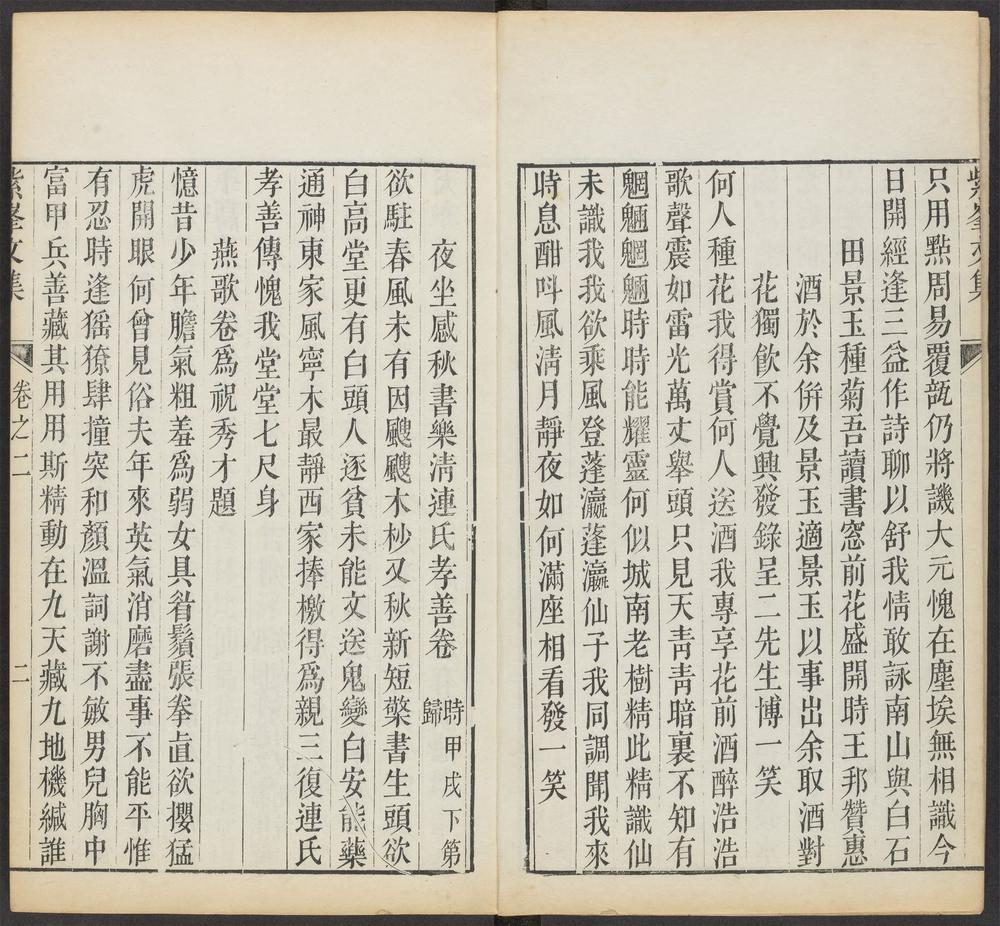 紫峯文集
只用點周易覆瓿仍將譏大元愧在塵埃無相識今
日開經逢三益作詩聊以舒我情敢詠南山與白石
田景玉種菊吾讀書窓前花盛開時王邦贊惠
酒於余倂及景玉適景玉以事出余取酒對
花獨飲不覺興發錄呈二先生博一笑
何人種花我得賞何人送酒我專享花前酒醉浩浩
歌聲震如雷光萬丈舉頭只見天靑靑暗裏不知有
魍魎魍魎時時能耀靈何似城南老樹精此精識仙
未識我我欲乘風登蓬瀛蓬瀛仙子我同調聞我來
時息酣呌風淸月靜夜如何滿座相看發一笑
夜坐感秋書樂淸連氏孝善卷 時甲戌下第
歸
欲駐春風未有因颼颼木杪又秋新短檠書生頭欲
白高堂更有白頭人逐貧未能文送鬼變白安能藥
通神東家風寧木最靜西家捧檄得爲親三復連氏
孝善傳愧我堂堂七尺身
燕歌卷爲祝秀才題
憶昔少年膽氣粗羞爲弱女具眉鬚張拳直欲攖猛
虎開眼何曾見俗夫年來英氣消磨盡事不能平惟
有忍時逢猺獠肆撞突和顏溫詞謝不敏男兒胸中
富甲兵善藏其用用斯精動在九天藏九地機緘誰
紫峯文集 卷之二 二